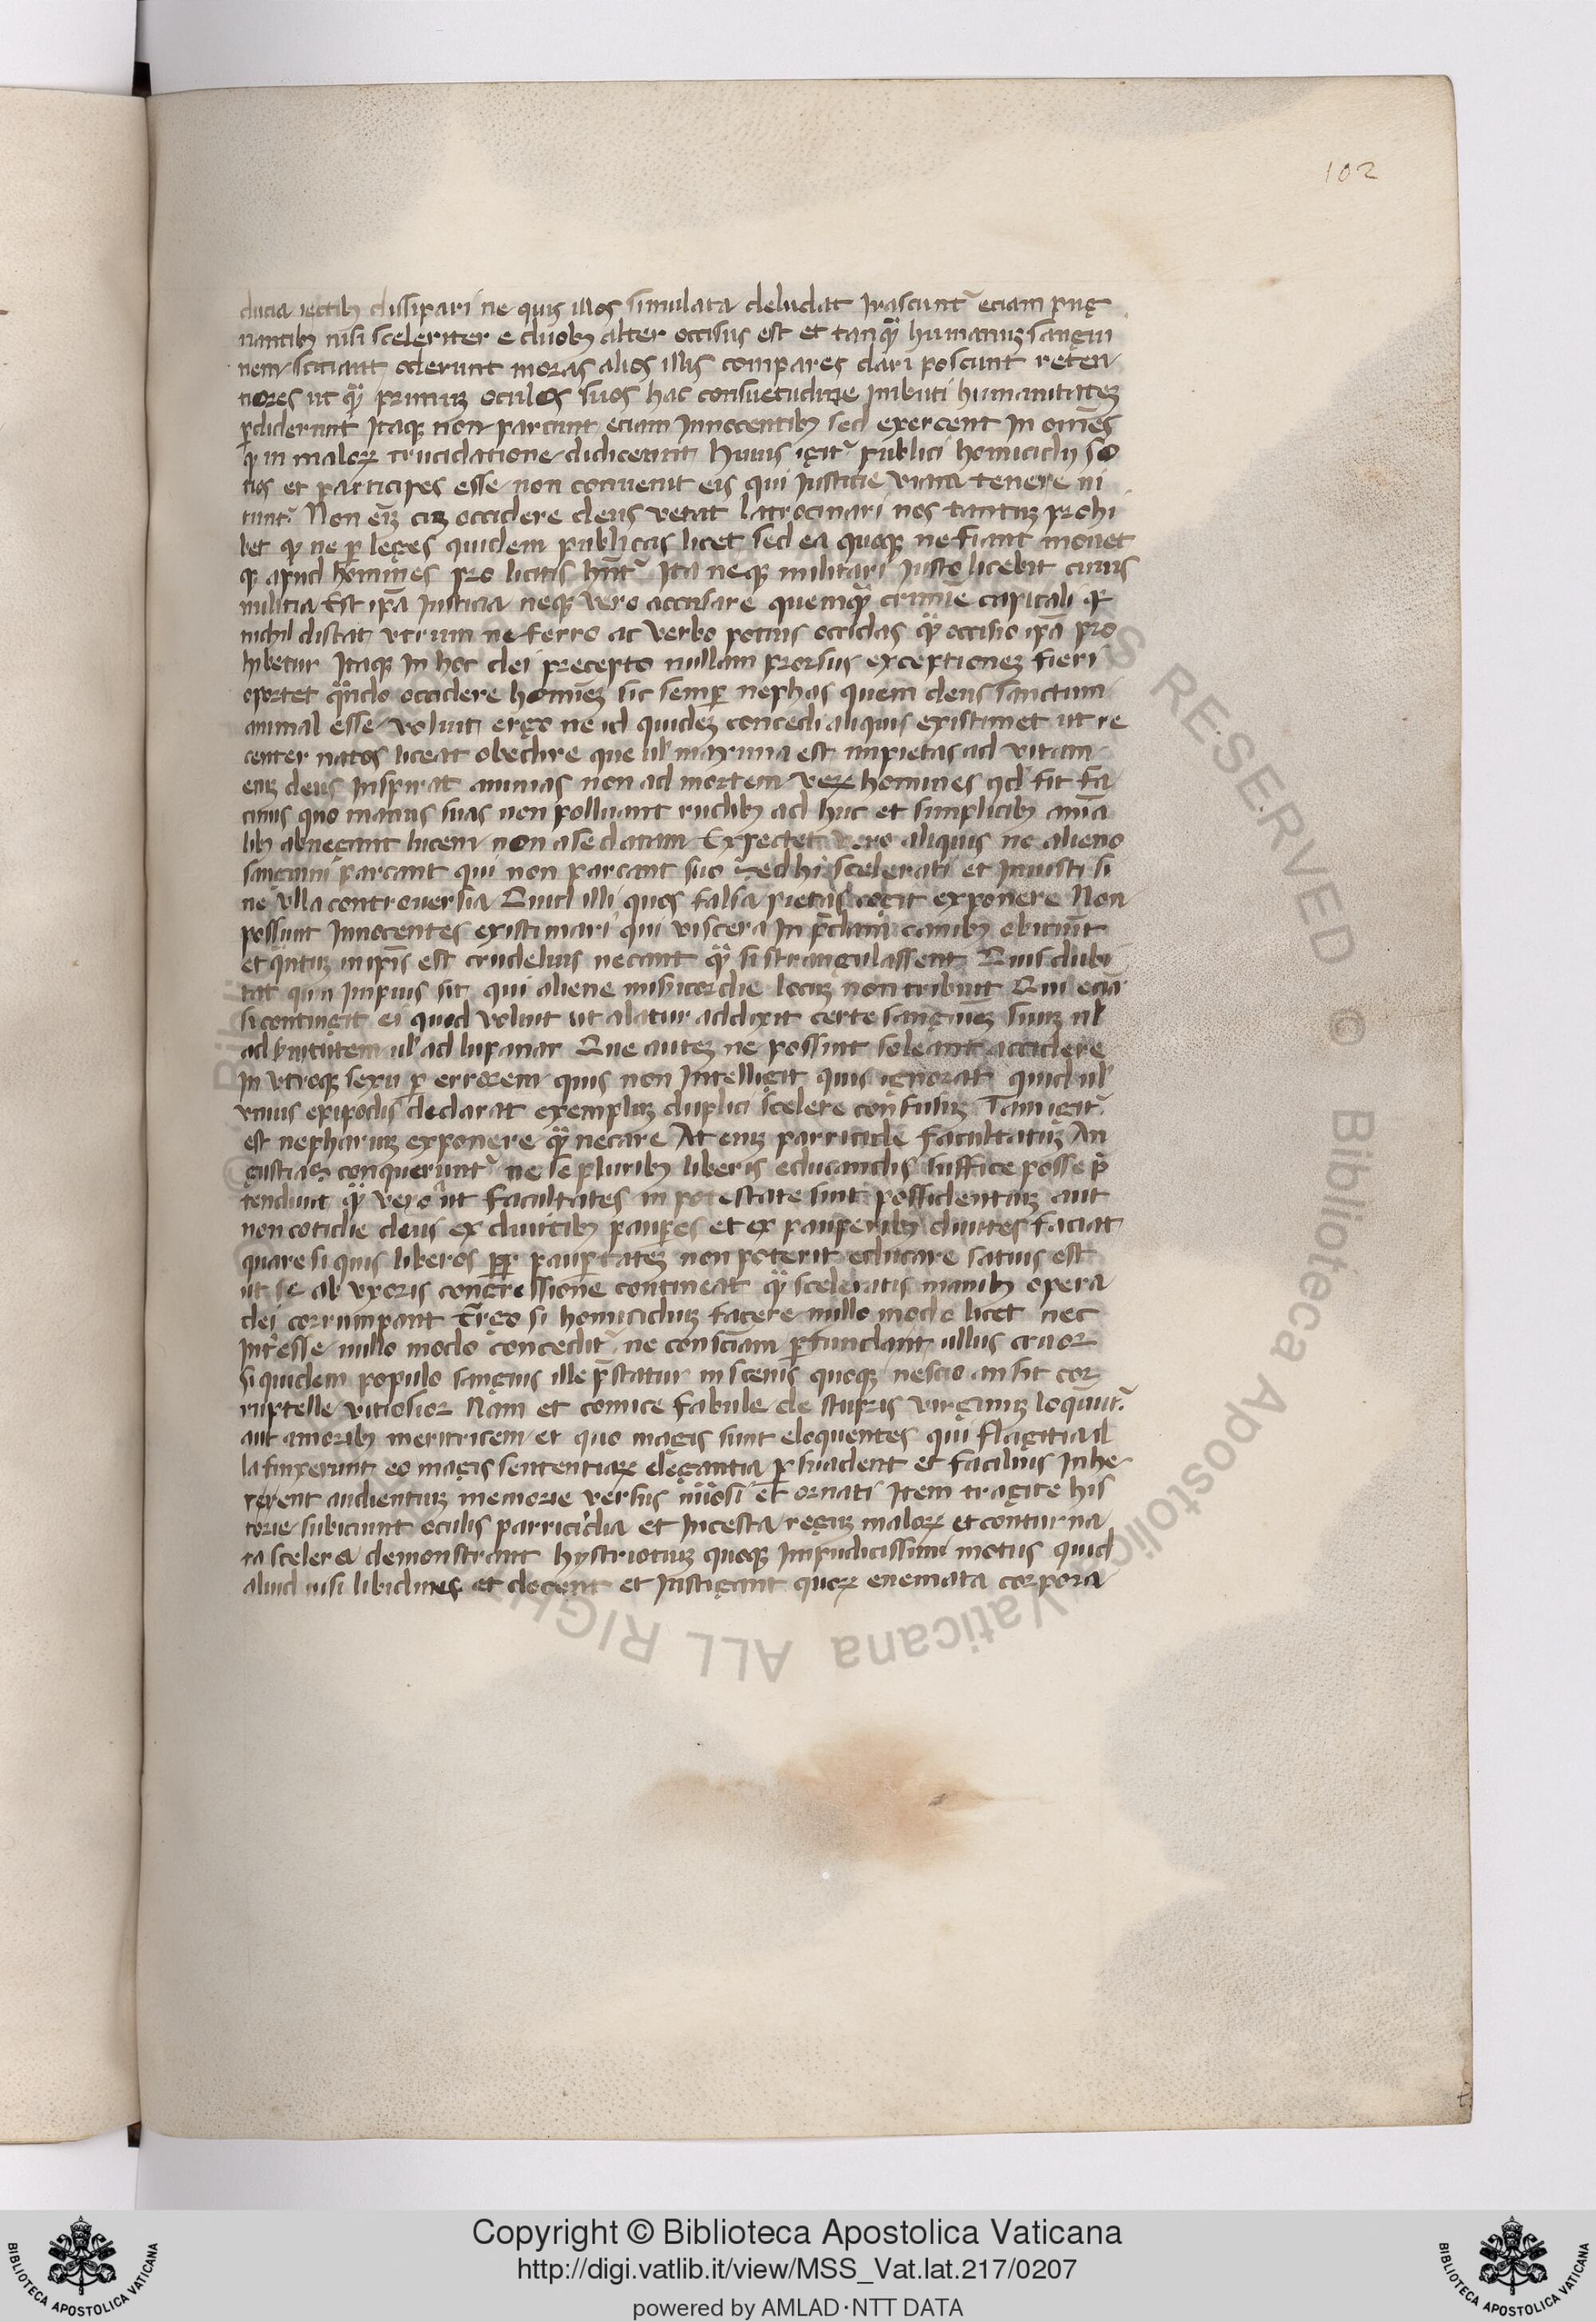 102
ducia ictibꝫ dissipari ne quis illos simulata deludat Irascunt᷑ eciam pug
nantibꝫ nisi sceleriter e duobꝫ alter occisus est et tanqͣ humanuꝫ sangui
nem sciciant oderunt moras alios illis compares dari poscunt recen
tiores ut qͣ primuꝫ oculos suos hac consuetudine Inbuti humanitateꝫ
ꝑdiderunt Itaqꝫ non parcunt eciam Innocentibꝫ sed exercent In om̄es
ꝙ in maloꝝ trucidatione didicerunt huius igit᷑ publici homicidij so
cios et participes esse non conuenit eis qui Justicie viam tenere ni
tunt᷑ Non em̄ cuꝫ occidere deus vetat latrocinari nos tantuꝫ prohi
bet ꝙ ne ꝑ leges quidem publicas licet sed ea quoqꝫ ne fiant monet
ꝙ apud homines pro licitis hn̄t᷑ Ita neqꝫ militari Justo licebit cuius
militia Est ip̄a Justicia neqꝫ vero accusare quemqͣ crimine capitali qꝛ
nichil distat vtrum ne ferro ac verbo potius occidas qͣ occisio ip̄a pro
hibetur Itaqꝫ In hoc dei precepto nullam prorsus exceptioneꝫ fieri
oportet qͣndo occidere homineꝫ sic semꝑ nephas quem deus sanctum
animal esse voluit ergo ne id quideꝫ concedi aliquis existimet ut re
center natos liceat obedire que ul maxima est impietas ad vitam
eniꝫ deus Inspirat animas non ad mortem Veꝝ homines qd fit fa
cinus quo manus suas non polluant rudibꝫ ad huc et simplicibꝫ anīa
libꝫ abnegant lucem non a se datam Expectet vero aliquis ne alieno
sanguini parcant qui non parcant suo Sed hi scelerati et Iniusti si
ne vlla controuersia Quid illi quos falsa pietas cogit exponere Non
possunt Innocentes existimari qui viscera In p̄dam canibꝫ obiciūt
et qͣntuꝫ in ip̄is est crudelius necant qͣ si strangulassent Quis dubi
tat quin Impius sit qui aliene mis̄icordie locuꝫ non tribuit Qui eciā
si contingit ei quod voluit ut alatur addixit certe sanguineꝫ suuꝫ ul
ad ẜuitutem ul ad lupanar Que auteꝫ ne possint soleant accidere
In vtroqꝫ sexu ꝑ errorem quis non Intelligit quis ignorat quid ul
vnius epipodis declarat exempluꝫ duplici scelere confusuꝫ Tam igit᷑
est nephariuꝫ exponere qͣ necare At eniꝫ parricide facultatuꝫ An
gustias conquerunt᷑ ne se pluribꝫ liberis educandis suffice posse p̄
tendunt qͣ vero ut facultates in potestate sint possidentiuꝫ aut
non cotidie deus ex diuitibꝫ pauꝑes et ex pauperibꝫ diuites faciat
quare si quis liberos ꝓpꝛ pauꝑtateꝫ non poterit educare satius est
ut se ab vxoris congressione contineat qͣ sceleratis manibꝫ opera
dei corrumpant Ergo si homicidiuꝫ facere nullo modo licet nec
Int̄esse nullo modo concedit᷑ ne consciam ꝑfundant ullus cruor
si quidem populo sanguis ille p̄statur in scenis quoqꝫ nescio an sit cor
ruptelle vitiosior Nam et comice fabule de stupris virginuꝫ loquūt᷑
aut amoribꝫ meritricem et quo magis sunt eloquentes qui flagitia il
la finxerunt eo magis sententiaꝝ elegantia ꝑsuadent et facilius Inhe
rerent audientiuꝫ memorie versus nūosi et ornati Item tragice his
torie subiciunt oculis parricidia et Incesta reguꝫ maloꝝ et conturna
ta scelera demonstrant hystriotuꝫ quoqꝫ Impudicissimi motus quid
aliud nisi libidines et docent et Instigant quoꝝ enemata corpora
Copyright © Biblioteca Apostolica Vaticana
http://digi.vatlib.it/view/MSS_Vat.lat.217/0207
powered by AMLAD·NTT DATA
BIBLIOTECA APOSTOLICA VATICANA
BIBLIOTECA APOSTOLICA VATICANA
© Biblioteca Apostolica Vaticana ALL RIGHTS RESERVED